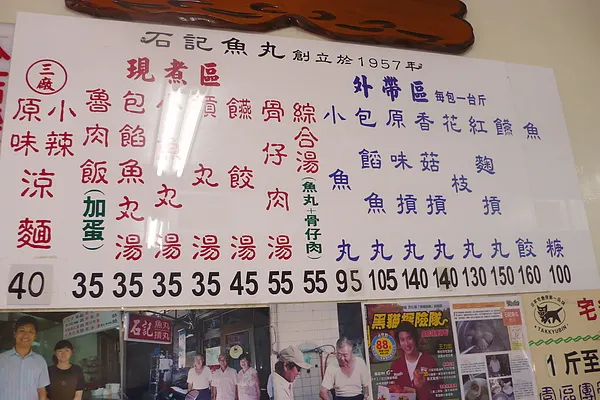 石記魚丸創立於1957年
現煮區
三廠
原味 小辣 涼麵 40
魯肉飯(加蛋) 35
包餡魚丸湯 35
小魚丸湯 35
摃丸湯 35
鱻餃湯 45
骨仔肉湯 55
綜合湯(魚丸+骨仔肉) 55
外帶區 每包一台斤
小魚丸 95
包餡魚丸 105
原味摃丸 140
香菇摃丸 140
花枝丸 130
紅麴摃丸 150
鱻餃 160
魚糕 100
石記
魚丸
摃丸
黑貓探險隊
88
TAKKYUBIN
宅
1斤至